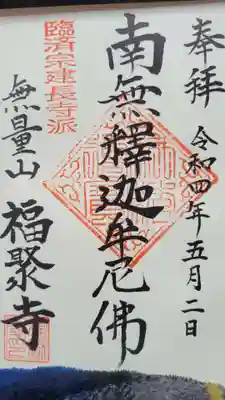 奉拝
令和四年五月二日
南無釋迦牟尼佛
臨済宗建長寺派
無量山
福聚寺